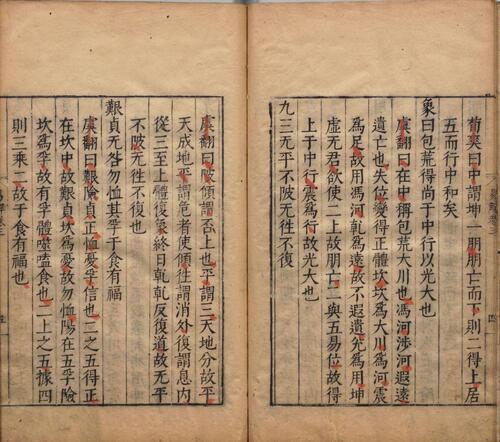 荀爽曰中謂坤一朋朋亡而下則二得上居
五而行中和矣
象曰包荒得尚于中行以光大也
虞翻曰在中稱包荒大川也馮河涉河遐遠
遺亡也失位變得正體坎坎爲大川爲河震
爲足故用馮河乾爲遠故不遐遺兊爲用坤
虛无君欲使二上故朋亡二與五易位故得
上于中行震爲行故光大也
九三无平不陂无往不復
虞翻曰陂傾謂否上也平謂三天地分故平
天成地平謂危者使傾往謂消外復謂息内
從三至上體復象終日乾乾反復道故无平
不陂无往不復也
艱貞无咎勿恤其孚于食有福
虞翻曰艱險貞正恤憂孚信也二之五得正
在坎中故艱貞坎爲憂故勿恤陽在五孚險
坎爲孚故有孚體噬嗑食也二上之五據四
則三乘二故于食有福也